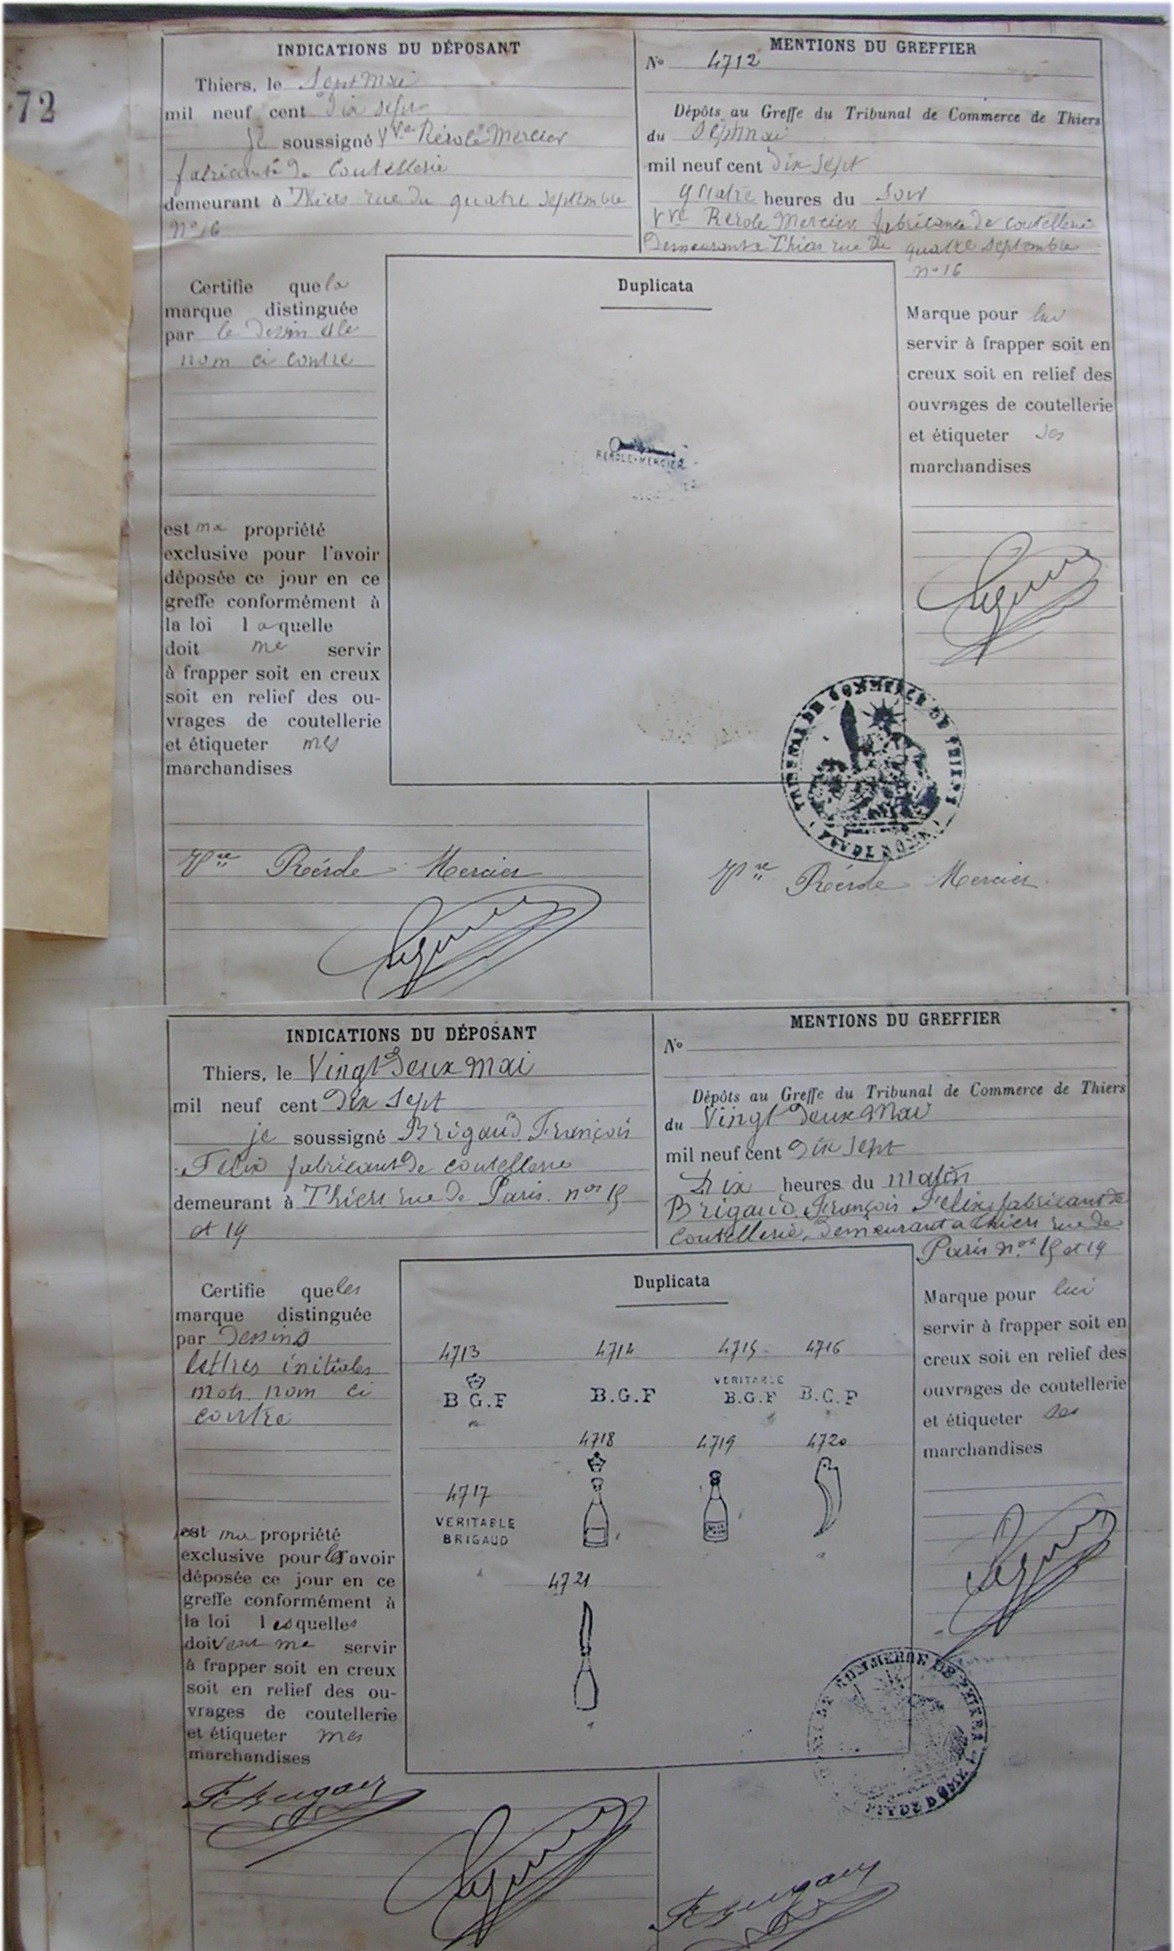 72
INDICATIONS DU DÉPOSANT
Thiers, le Sept Mai
mil neuf cent dix sept
je soussigné Vve Rérolé Mercier
fabricante de Coutellerie
demeurant à Thiers rue du quatre Septembre
no 16
MENTIONS DU GREFFIER
No 4712
Dépôts au Greffe du Tribunal de Commerce de Thiers
du Sept mai
mil neuf cent dix sept
quatre heures du soir
Vve Rerole Mercier, fabricante de coutellerie
demeurant a Thiers rue du quatre septembre
no 16
Certifie que la
marque distinguée
par le dessin et le
nom ci contre
est ma propriété
exclusive pour l'avoir
déposée ce jour en ce
greffe conformément à
la loi laquelle
doit me servir
à frapper soit en creux
soit en relief des ou-
vrages de coutellerie
et étiqueter mes
marchandises
Duplicata
REROLE-MERCIER
Marque pour lui
servir à frapper soit en
creux soit en relief des
ouvrages de coutellerie
et étiqueter ses
marchandises
TRIBUNAL DE COMMERCE DE THIERS
PUY DE DOME
Vve Rérole Mercier
Vve Rérole Mercier
INDICATIONS DU DÉPOSANT
Thiers, le Vingt deux Mai
mil neuf cent dix sept
je soussigné Brigaud François
Felix fabricant de coutellerie
demeurant à Thiers rue de Paris. nos 15
et 19
MENTIONS DU GREFFIER
No
Dépôts au Greffe du Tribunal de Commerce de Thiers
du Vingt deux Mai
mil neuf cent dix sept
Dix heures du matin
Brigaud François Felix fabricant de
coutellerie, demeurant a Thiers rue de
Paris nos 15 et 19
Certifie que les
marque distinguée
par dessins
lettres initiales
mots nom ci
contre
est ma propriété
exclusive pour les avoir
déposée ce jour en ce
greffe conformément à
la loi lesquelles
doivent me servir
à frapper soit en creux
soit en relief des ou-
vrages de coutellerie
et étiqueter mes
marchandises
Duplicata
4713 4714 4715 4716
B G.F B.G.F VERITABLE B.G.F B.G.F
4718 4719 4720
4717
VERITABLE
BRIGAUD
4721
Marque pour lui
servir à frapper soit en
creux soit en relief des
ouvrages de coutellerie
et étiqueter ses
marchandises
DE COMMERCE DE THIERS
PUY DE DOME